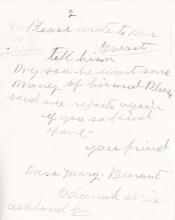 2
Please wrote to Mr
Everest
tell him
my son he want some
money of his and Pleas
send me reports again
if you so kind
of me
your friend
Miss Mary Durant
Odanah Wis
ashland co